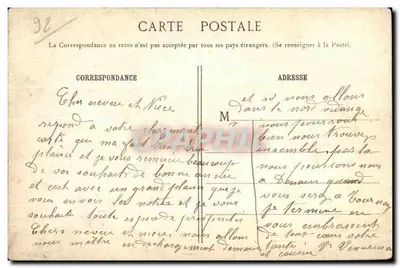 92
CARTE POSTALE
La Correspondance au recto n'est pas acceptée par tous ses pays étrangers. (Se renseigner à la Poste).
CORRESPONDANCE
Cher neveu et Niece
repond a votre charmente
carte qui ma fait bien
plaisir et je vous remercie beaucoup
de vos souhaits de bonne année
et cest avec un grand plaisir que je
nous envois les notres et je vous
souhaite toute espece de prosperités
Chers neveu et niece nous allons
nous mettre en dechargement demain
ADRESSE
M
et si nous allons
dans le nord
nous pourrons
bien nous trouver
ensemble par la
nous pourrons
a Demain quand
vous serez a
je termine en
vous embrassent
de tout cœur votre
tante
et cousin